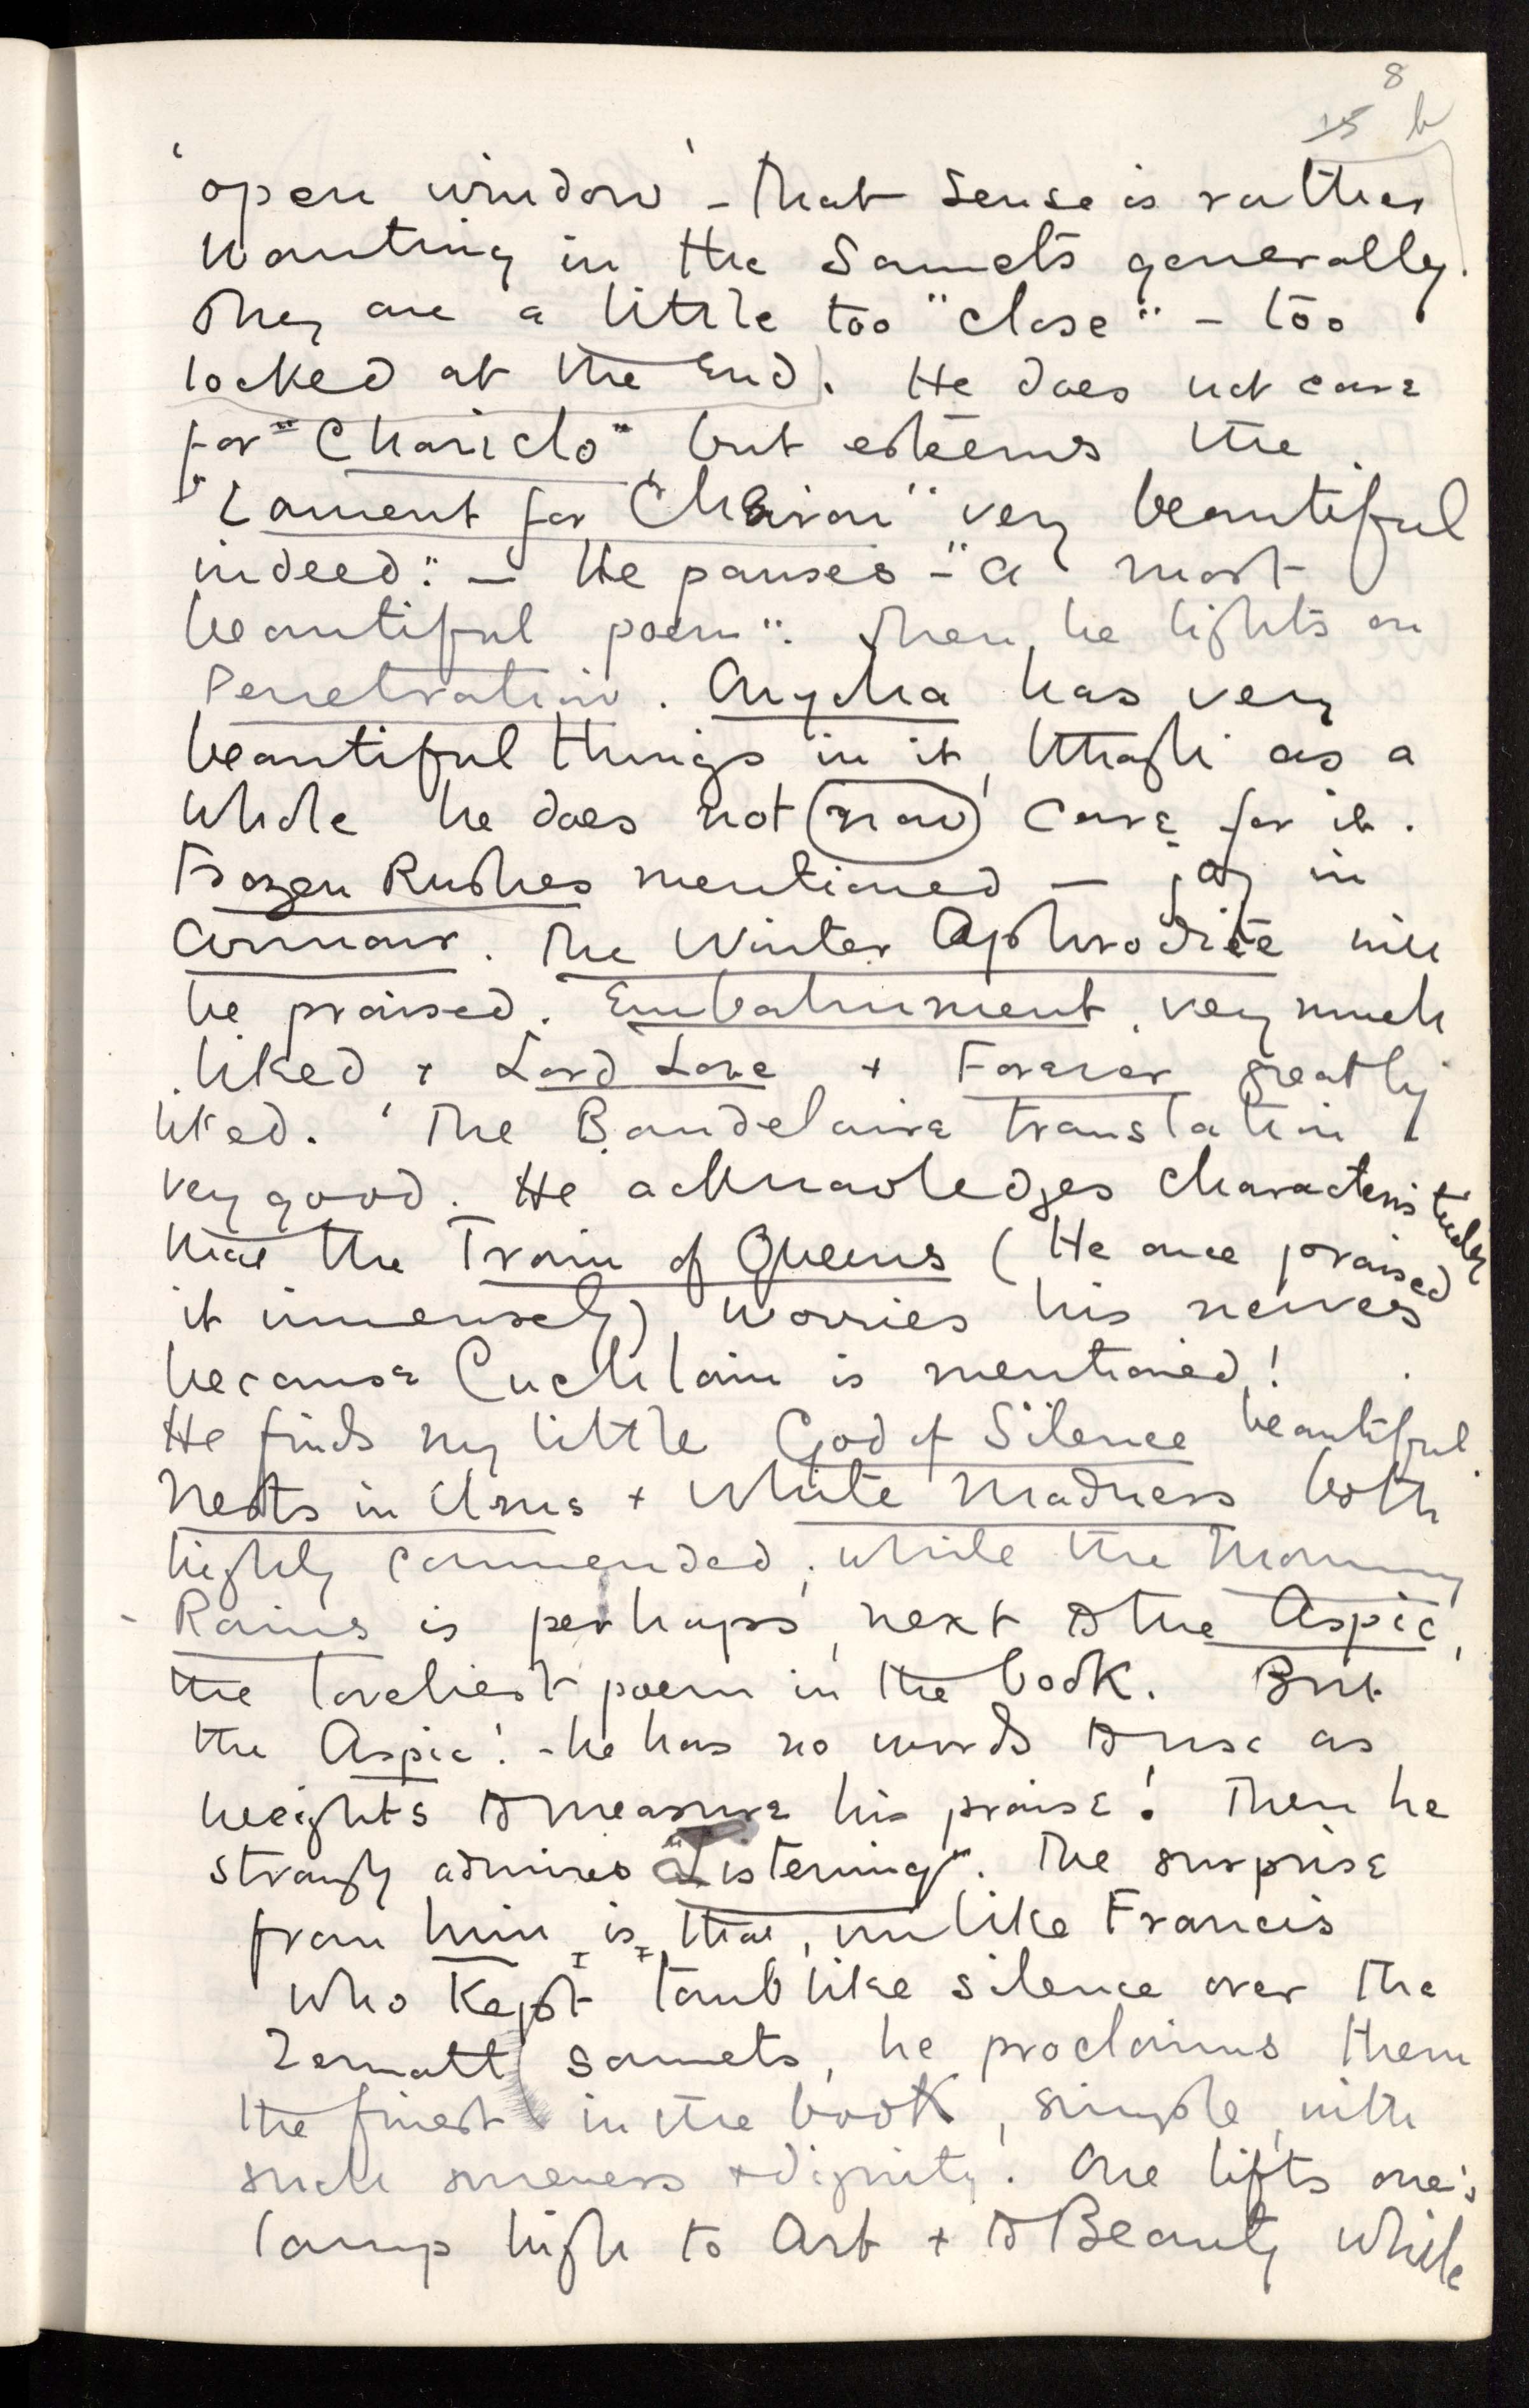 8
15 b
'open window' - that sense is rather
wanting in the Sonnets generally.
They are a little too "close" - too
locked at the End. He does not care
for "Chariclo" but esteems the
"Lament for Chairon" very beautiful
indeed: - He pauses - "a most
beautiful poem". Then, he lights on
Penetration. Onycha has very
beautiful things in it, though as a
whole he does not (now) care for it.
Frozen Rushes mentioned — joy in
armour. The Winter Aphrodite will
be praised. Embalmment very much
liked + Lord Love + Forever greatly
liked. The Baudelaire translation
very good. He acknowledges characteristically
that the Train of Queens (He once praised
it immensely) worries his nerves
because Cuchlain is mentioned!
He finds my little God of Silence beautiful.
Nests in Elms + White Madness both
highly commended; while the Morning
Rains is perhaps, next to the Aspic,
the loveliest poem in the book. But
the Aspic! - he has no words to use as
weights to measure his praise! Then he
strongly admires "Listening". The surprise
from him is that, unlike Francis
who kept tomblike silence over the
Zermatt sonnets, he proclaims them
the finest in the book, simple, with
such sureness + dignity. One lifts one's
lamp high to Art + to Beauty while